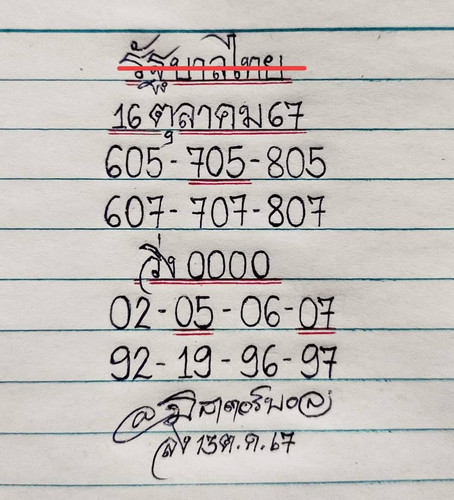 รัฐบาลไทย
16 ตุลาคม 67
605-705-805
607-707-807
วิ่ง 0000
02-05-06-07
92-19-96-97
ลง 15 ต.ค. 67